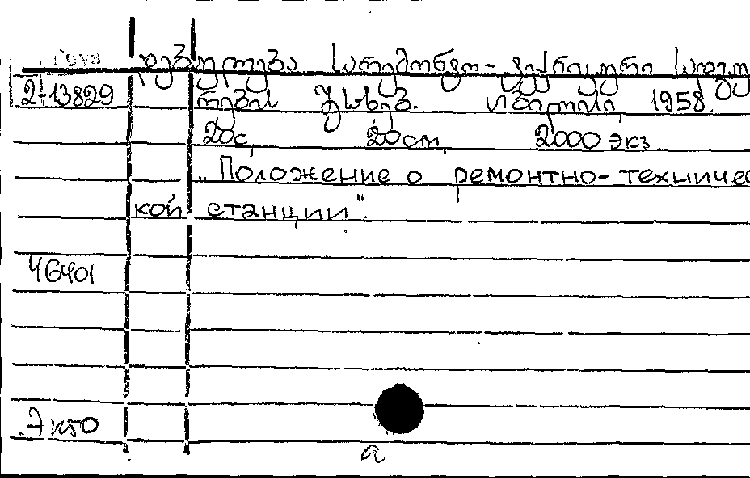 დებულება სარემონტო-ტექნიკური სადგუ
2-13829 რების შესახებ. თბილისი, 1958.
20с. 20cm. 2000 экз.
"Положение о ремонтно-техничес
кой станции".
46401
Экз
a